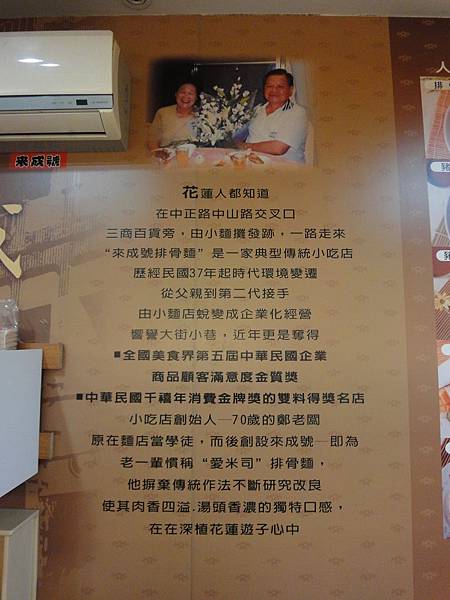 來成號
花蓮人都知道
在中正路中山路交叉口
三商百貨旁，由小麵攤發跡，一路走來
“來成號排骨麵”是一家典型傳統小吃店
歷經民國37年起時代環境變遷
從父親到第二代接手
由小麵店蛻變成企業化經營
響譽大街小巷，近年更是奪得
■全國美食界第五屆中華民國企業
商品顧客滿意度金質獎
■中華民國千禧年消費金牌獎的雙料得獎名店
小吃店創始人─70歲的鄭老闆
原在麵店當學徒，而後創設來成號─即為
老一輩慣稱“愛米司”排骨麵，
他摒棄傳統作法不斷研究改良
使其肉香四溢.湯頭香濃的獨特口感，
在在深植花蓮遊子心中
人
排
豬
豬